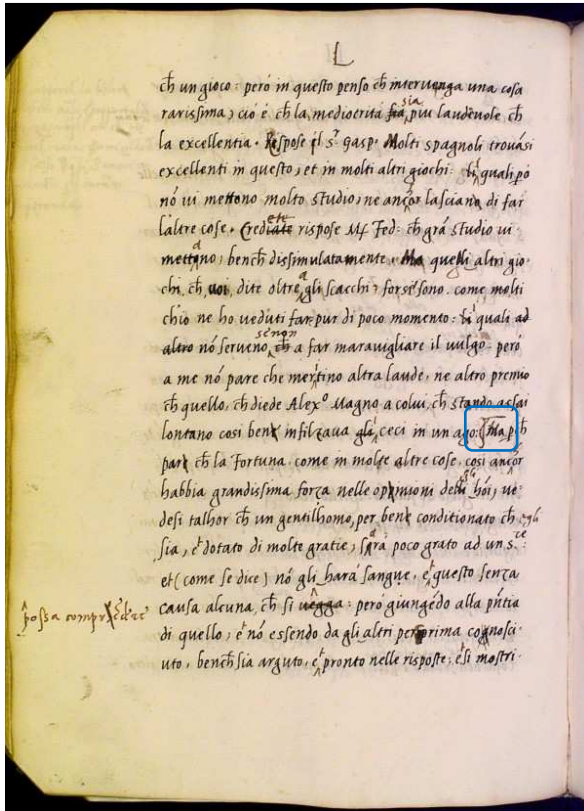 L
ch̄ un gioco: però in questo penso ch̄ intervenga una cosa
rarissima, ciò è ch̄ la mediocrità sia più laudevole ch̄
la excellentia. Rispose il s.r Gasp. Molti spagnoli trovāsi
excellenti in questo, et in molti altri giochi: quali pò
nō vi mettono molto studio, ne ancor lasciano di far
l'altre cose. Crediate ete rispose M. Fed: ch̄ grā studio vi
mettano, bench̄ dissimulatamente. Ma quelli altri gio-
chi, ch̄ voi, dite oltre a gli scacchi, forsi sono. come molti
chio ne ho veduti far pur di poco momento: li quali ad
altro nō serveno, senon ch̄ a far maravigliare il vulgo: però
a me nō pare che mertino altra laude, ne altro premio
ch̄ quello, ch̄ diede Alex.o Magno a colui, ch̄ stando assai
lontano così ben infilzava gli ceci in un ago: Ma pch̄
par ch̄ la Fortuna, come in molte altre cose, così ancor
habbia grandissima forza nelle oppenioni delli hōi, ve-
desi talhor ch̄ un gentilhomo, per ben conditionato ch̄ egli
sia, e dotato di molte gratie, sarà poco grato ad un s.re
et (come se dice) nō gli harà sangue, e questo senza
causa alcuna, ch̄ si vegga: però giungēdo alla pn̄tia
di quello, e nō essendo da gli altri per prima cognosci-
uto, bench̄ sia arguto, e pronto nelle risposte, e si mostri